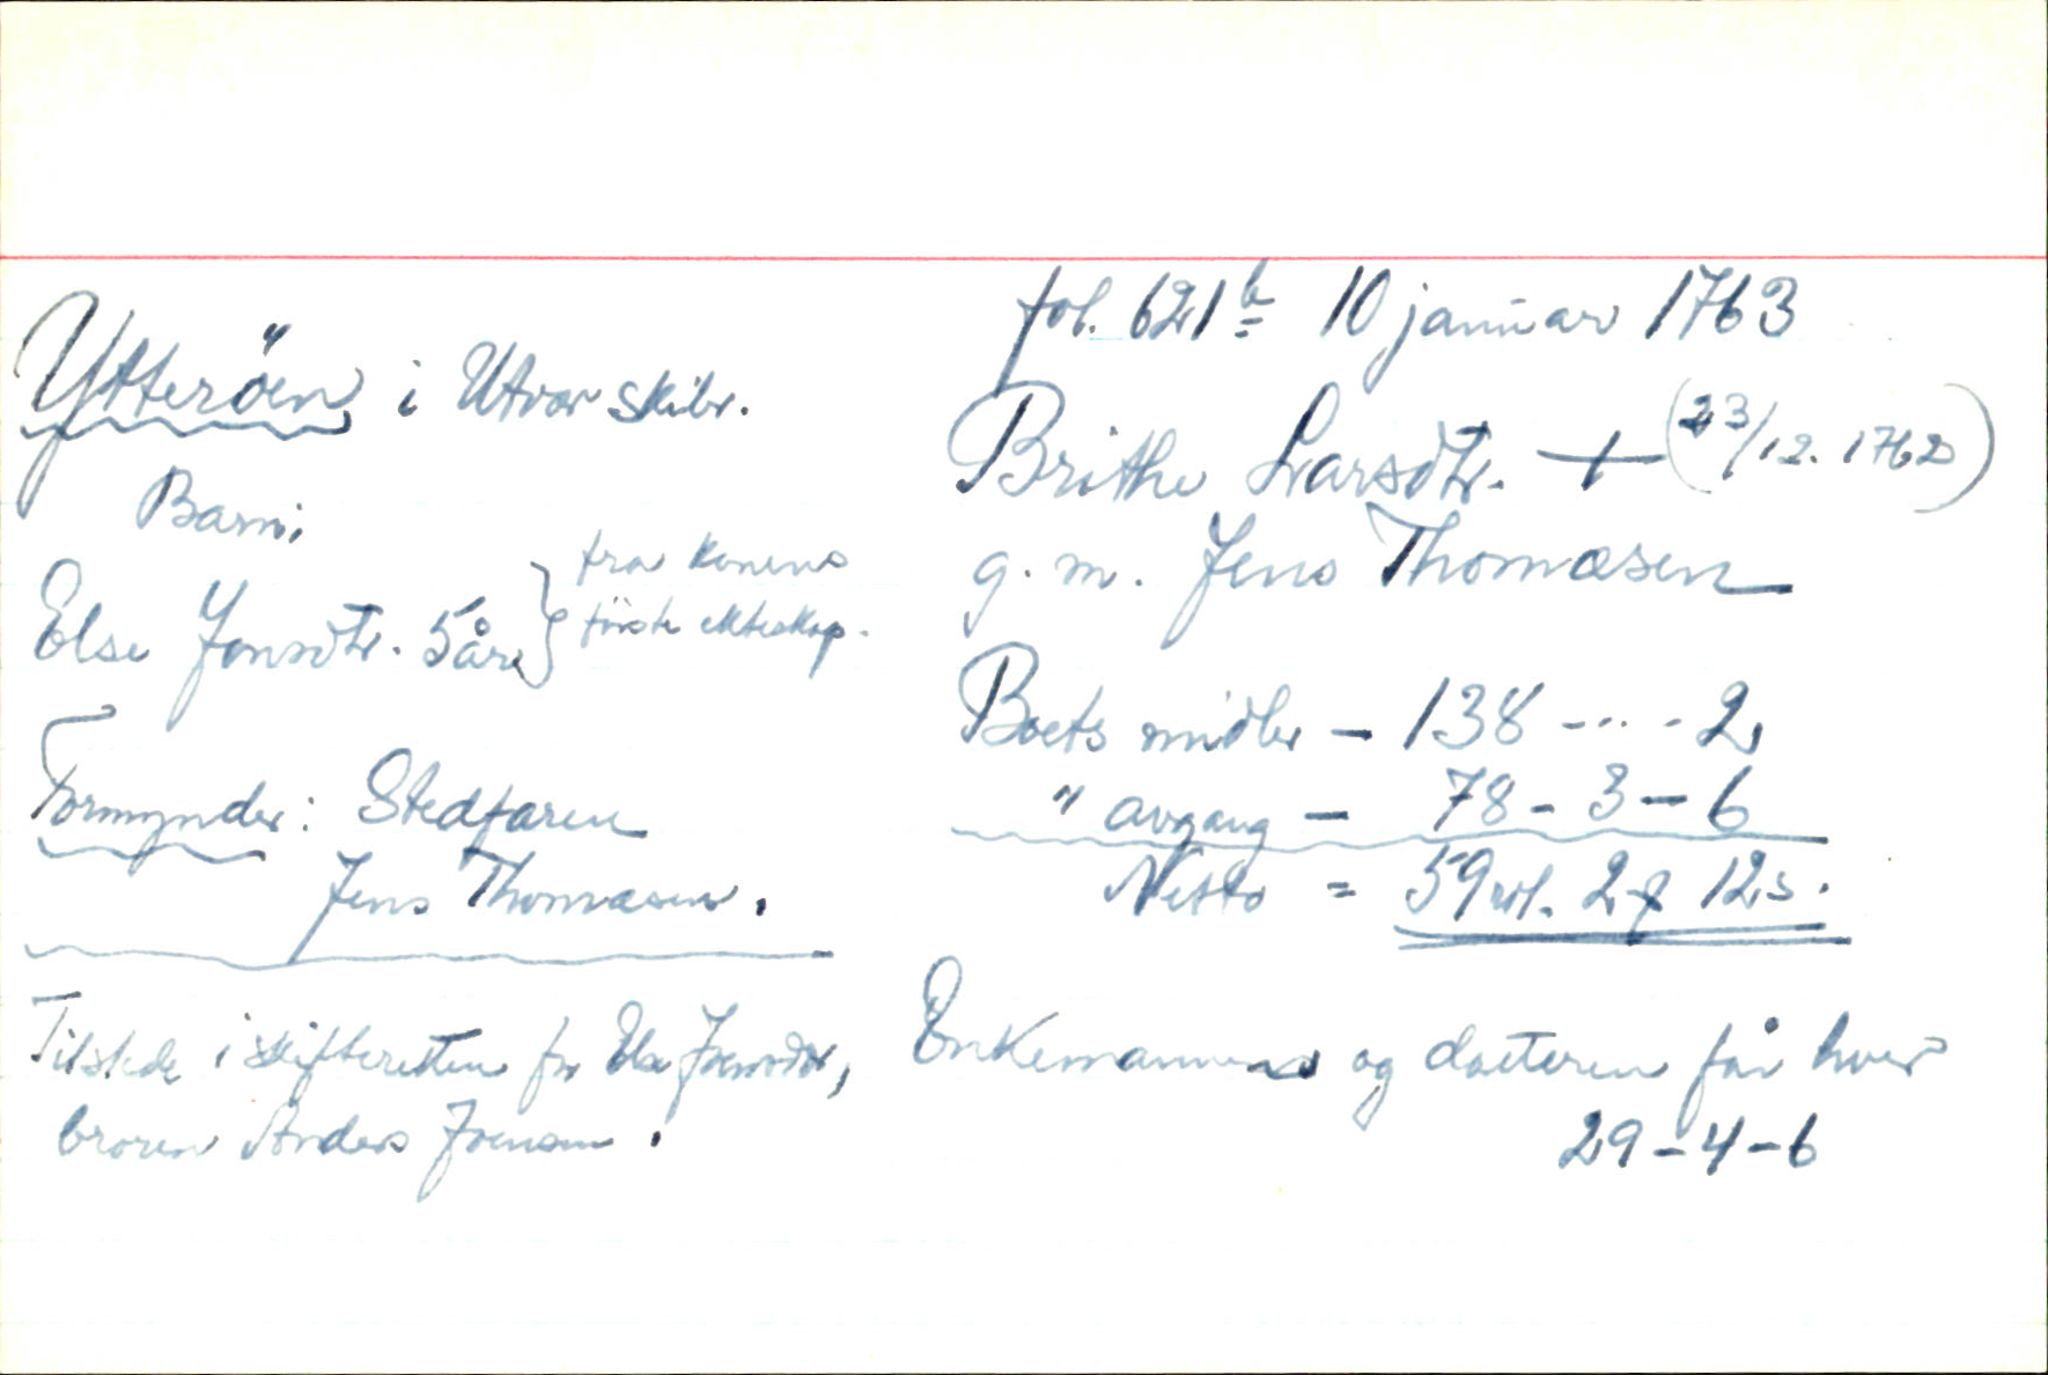 fol. 621b 10 januar 1763
Ytterøen i Utvær skibr.
Brithe Larsdtr. + (23/12. 1762)
g. m. Jens Thomæsen
Barn:
Else Jonsdtr. 5 år } fra konens
første ekteskap.
Formynder: Stedfaren
Jens Thomæsen.
Tilstede i skifteretten for Else Joensdtr,
broren Anders Joensen.
Boets midler – 138 - ... - 2
" avgang – 78 - 3 – 6
Netto = 59 rd. 2 ƒ 12 s.
Enkemannen og datteren får hver
29 – 4 – 6